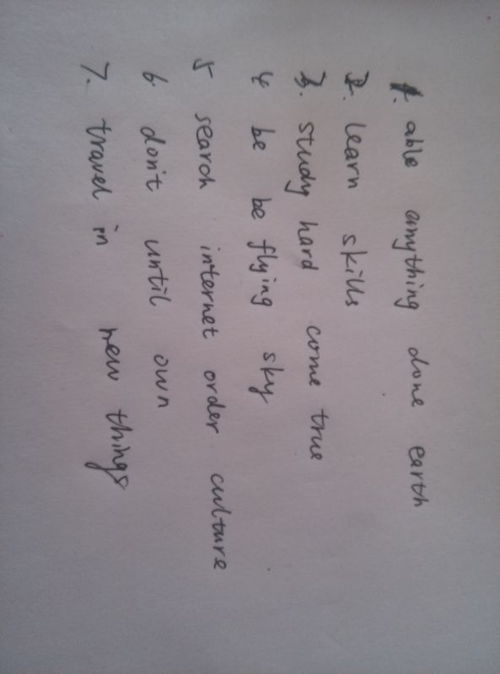 1. able anything done earth
2. learn skills
3. study hard come true
4 be be flying sky
5 search internet order culture
6. don't until own
7. travel in new things